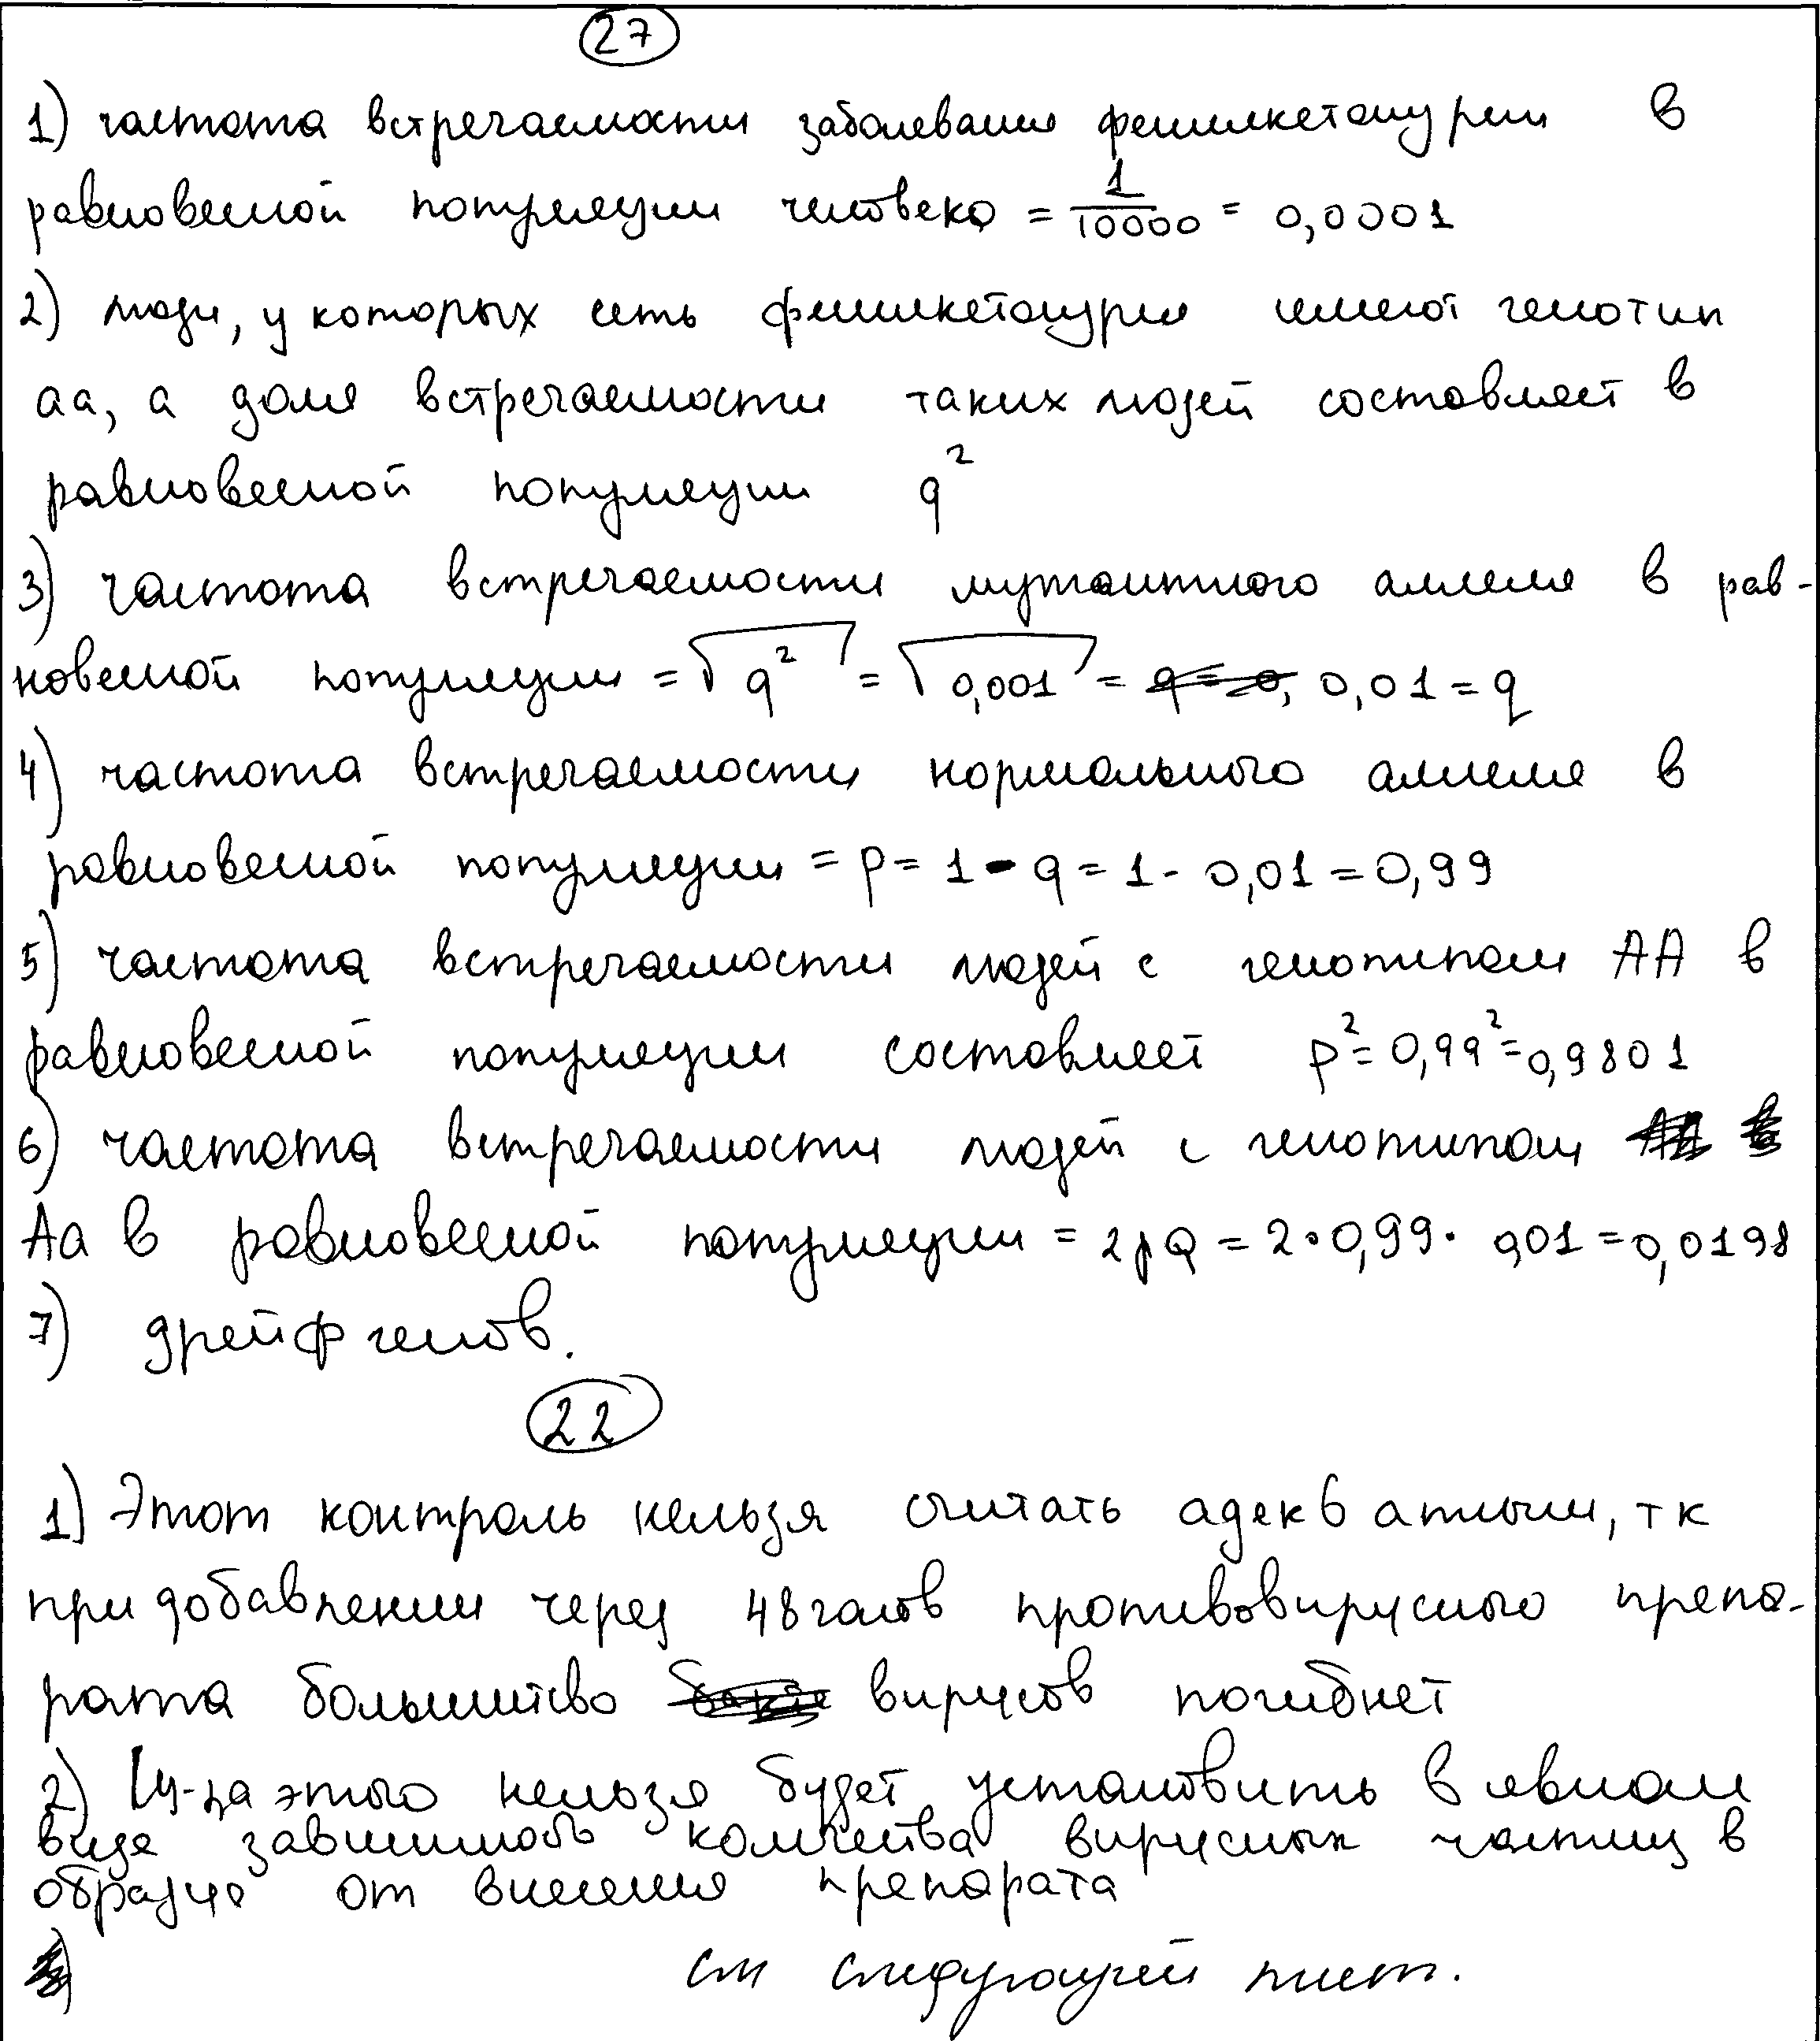 27
1) частота встречаемости заболевания фенилкетонурии в
равновесной популяции человека = 1/10000 = 0,0001
2) люди, у которых есть фенилкетонурия имеют генотип
аа, а доля встречаемости таких людей составляет в
равновесной популяции q²
3) частота встречаемости мутантного аллеля в рав-
новесной популяции = √q² = √0,001 = 0,01 = q
4) частота встречаемости нормального аллеля в
равновесной популяции = p = 1 - q = 1 - 0,01 = 0,99
5) частота встречаемости людей с генотипом АА в
равновесной популяции составляет p² = 0,99² = 0,9801
6) частота встречаемости людей с генотипом
Аа в равновесной популяции = 2pq = 2·0,99·0,01 = 0,0198
7) дрейф генов.
22
1) Этот контроль нельзя считать адекватным, тк
при добавлении через 48 часов противовирусного препа-
рата большинство вирусов погибнет
2) Из-за этого нельзя будет установить в явном
виде зависимость количества вирусных частиц в
образце от внесения препарата
см следующий лист.